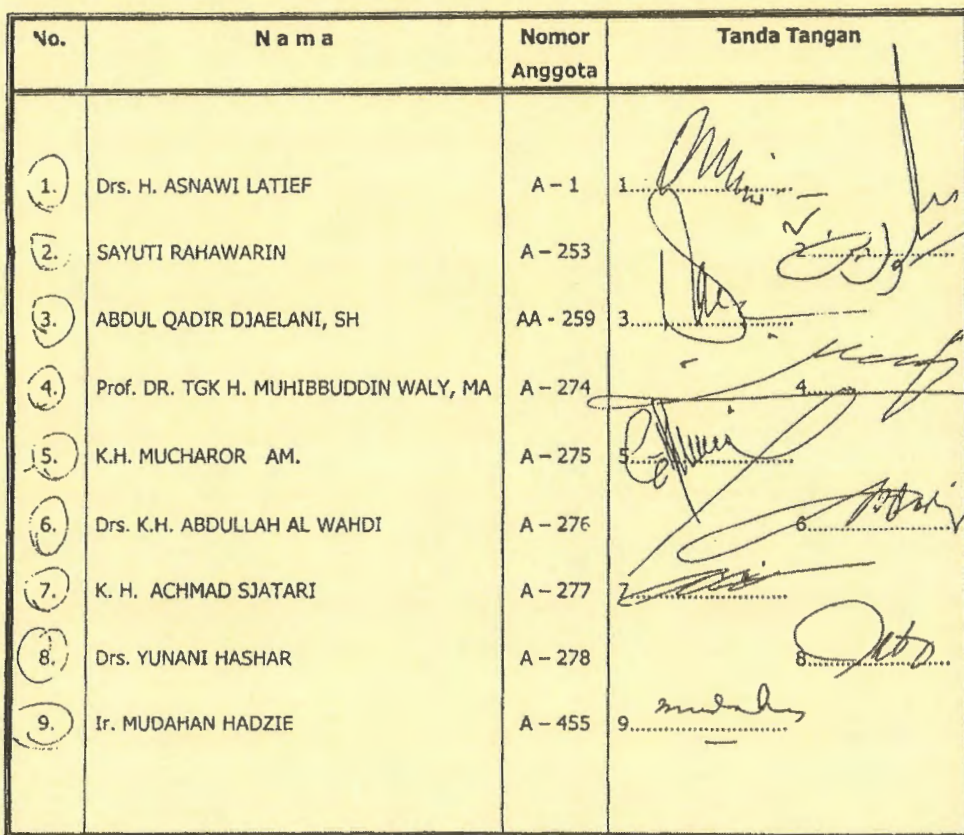 No. N a m a Nomor Anggota Tanda Tangan
1. Drs. H. ASNAWI LATIEF A – 1 1
2. SAYUTI RAHAWARIN A – 253 2
3. ABDUL QADIR DJAELANI, SH AA - 259 3
4. Prof. DR. TGK H. MUHIBBUDDIN WALY, MA A – 274 4
5. K.H. MUCHAROR AM. A – 275 5
6. Drs. K.H. ABDULLAH AL WAHDI A – 276 6
7. K. H. ACHMAD SJATARI A – 277 7
8. Drs. YUNANI HASHAR A – 278 8
9. Ir. MUDAHAN HADZIE A – 455 9